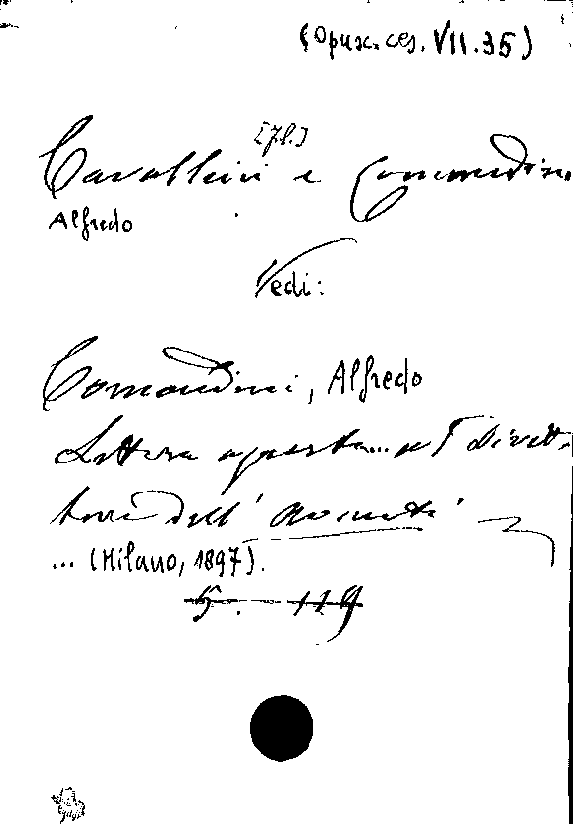 (Opusc. ces. VII.35)
[F.C.]
Cavallini e Comandini
Alfredo
Vedi:
Comandini, Alfredo
Lettera aperta... a Dirett-
tori dell' Avanti
... (Milano, 1897).
5. 119